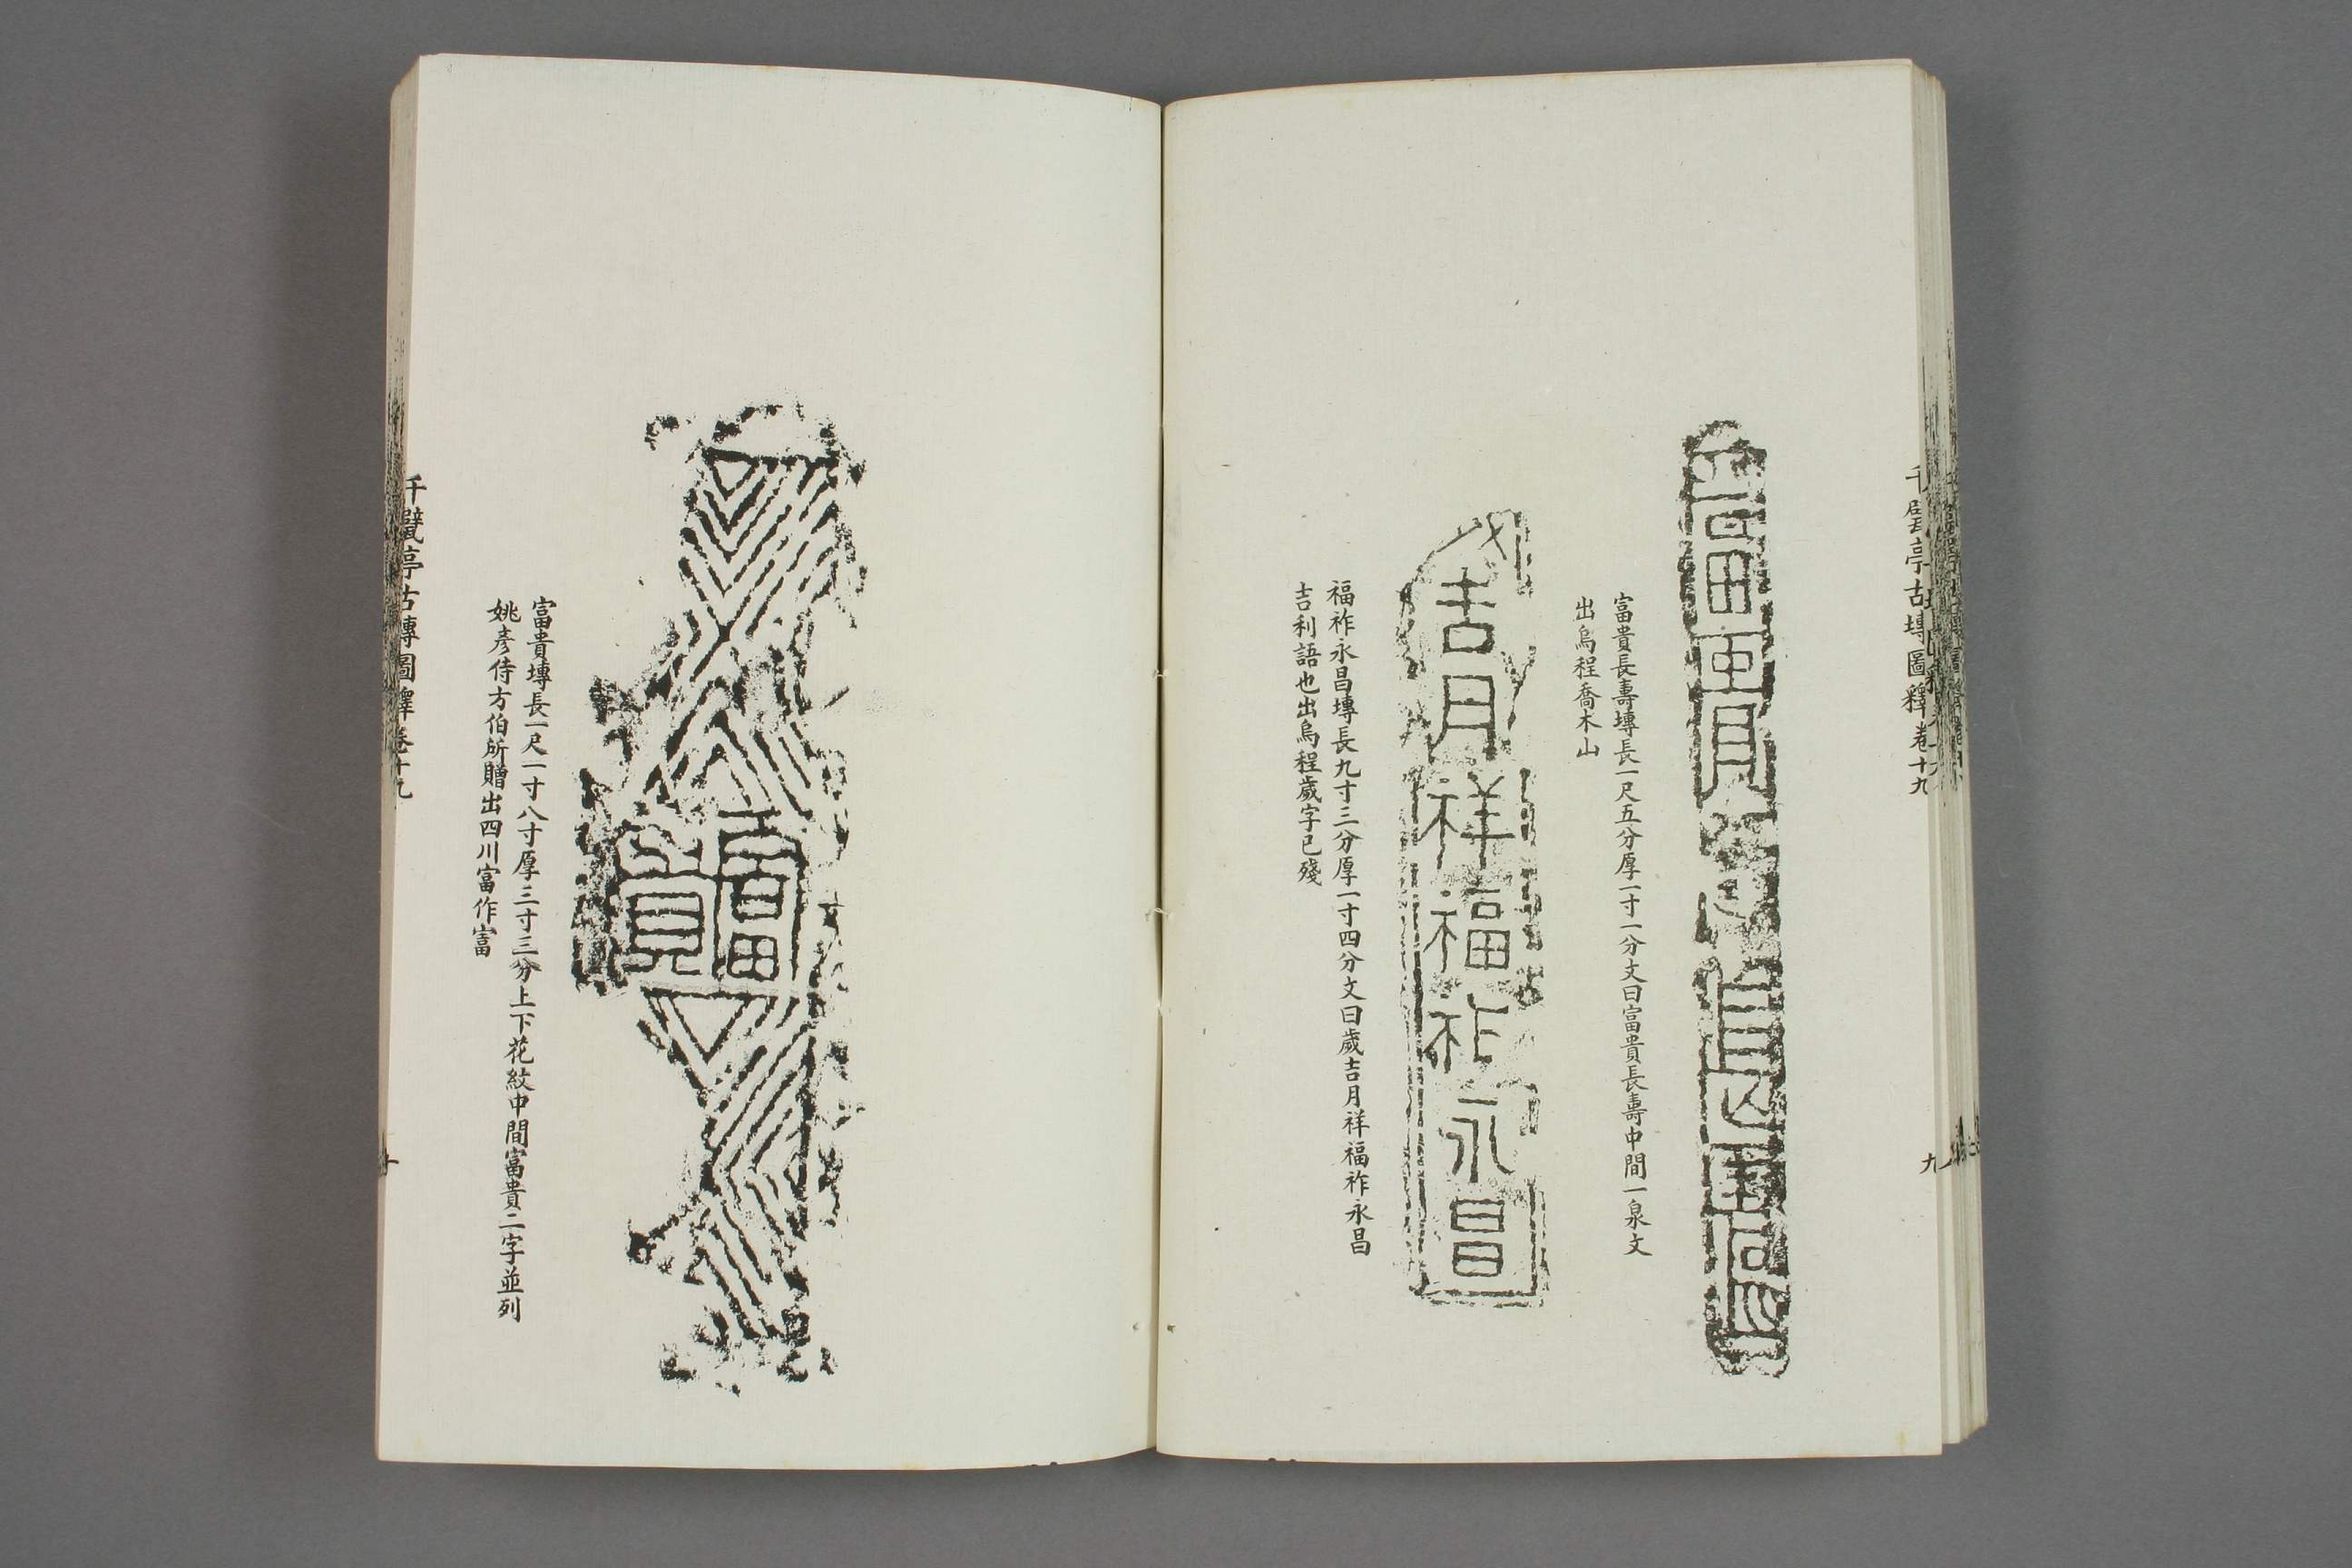 千甓亭古塼圖釋卷十九
九
富貴長壽塼長一尺五分厚一寸一分文曰富貴長壽中間一泉文
出烏程喬木山
吉月祥福祚永昌
福祚永昌塼長九寸三分厚一寸四分文曰歲吉月祥福祚永昌
吉利語也出烏程歲字已殘
富
貴
富貴塼長一尺一寸八寸厚三寸三分上下花紋中間富貴二字並列
姚彥侍方伯所贈出四川富作富
千甓亭古塼圖釋卷十九